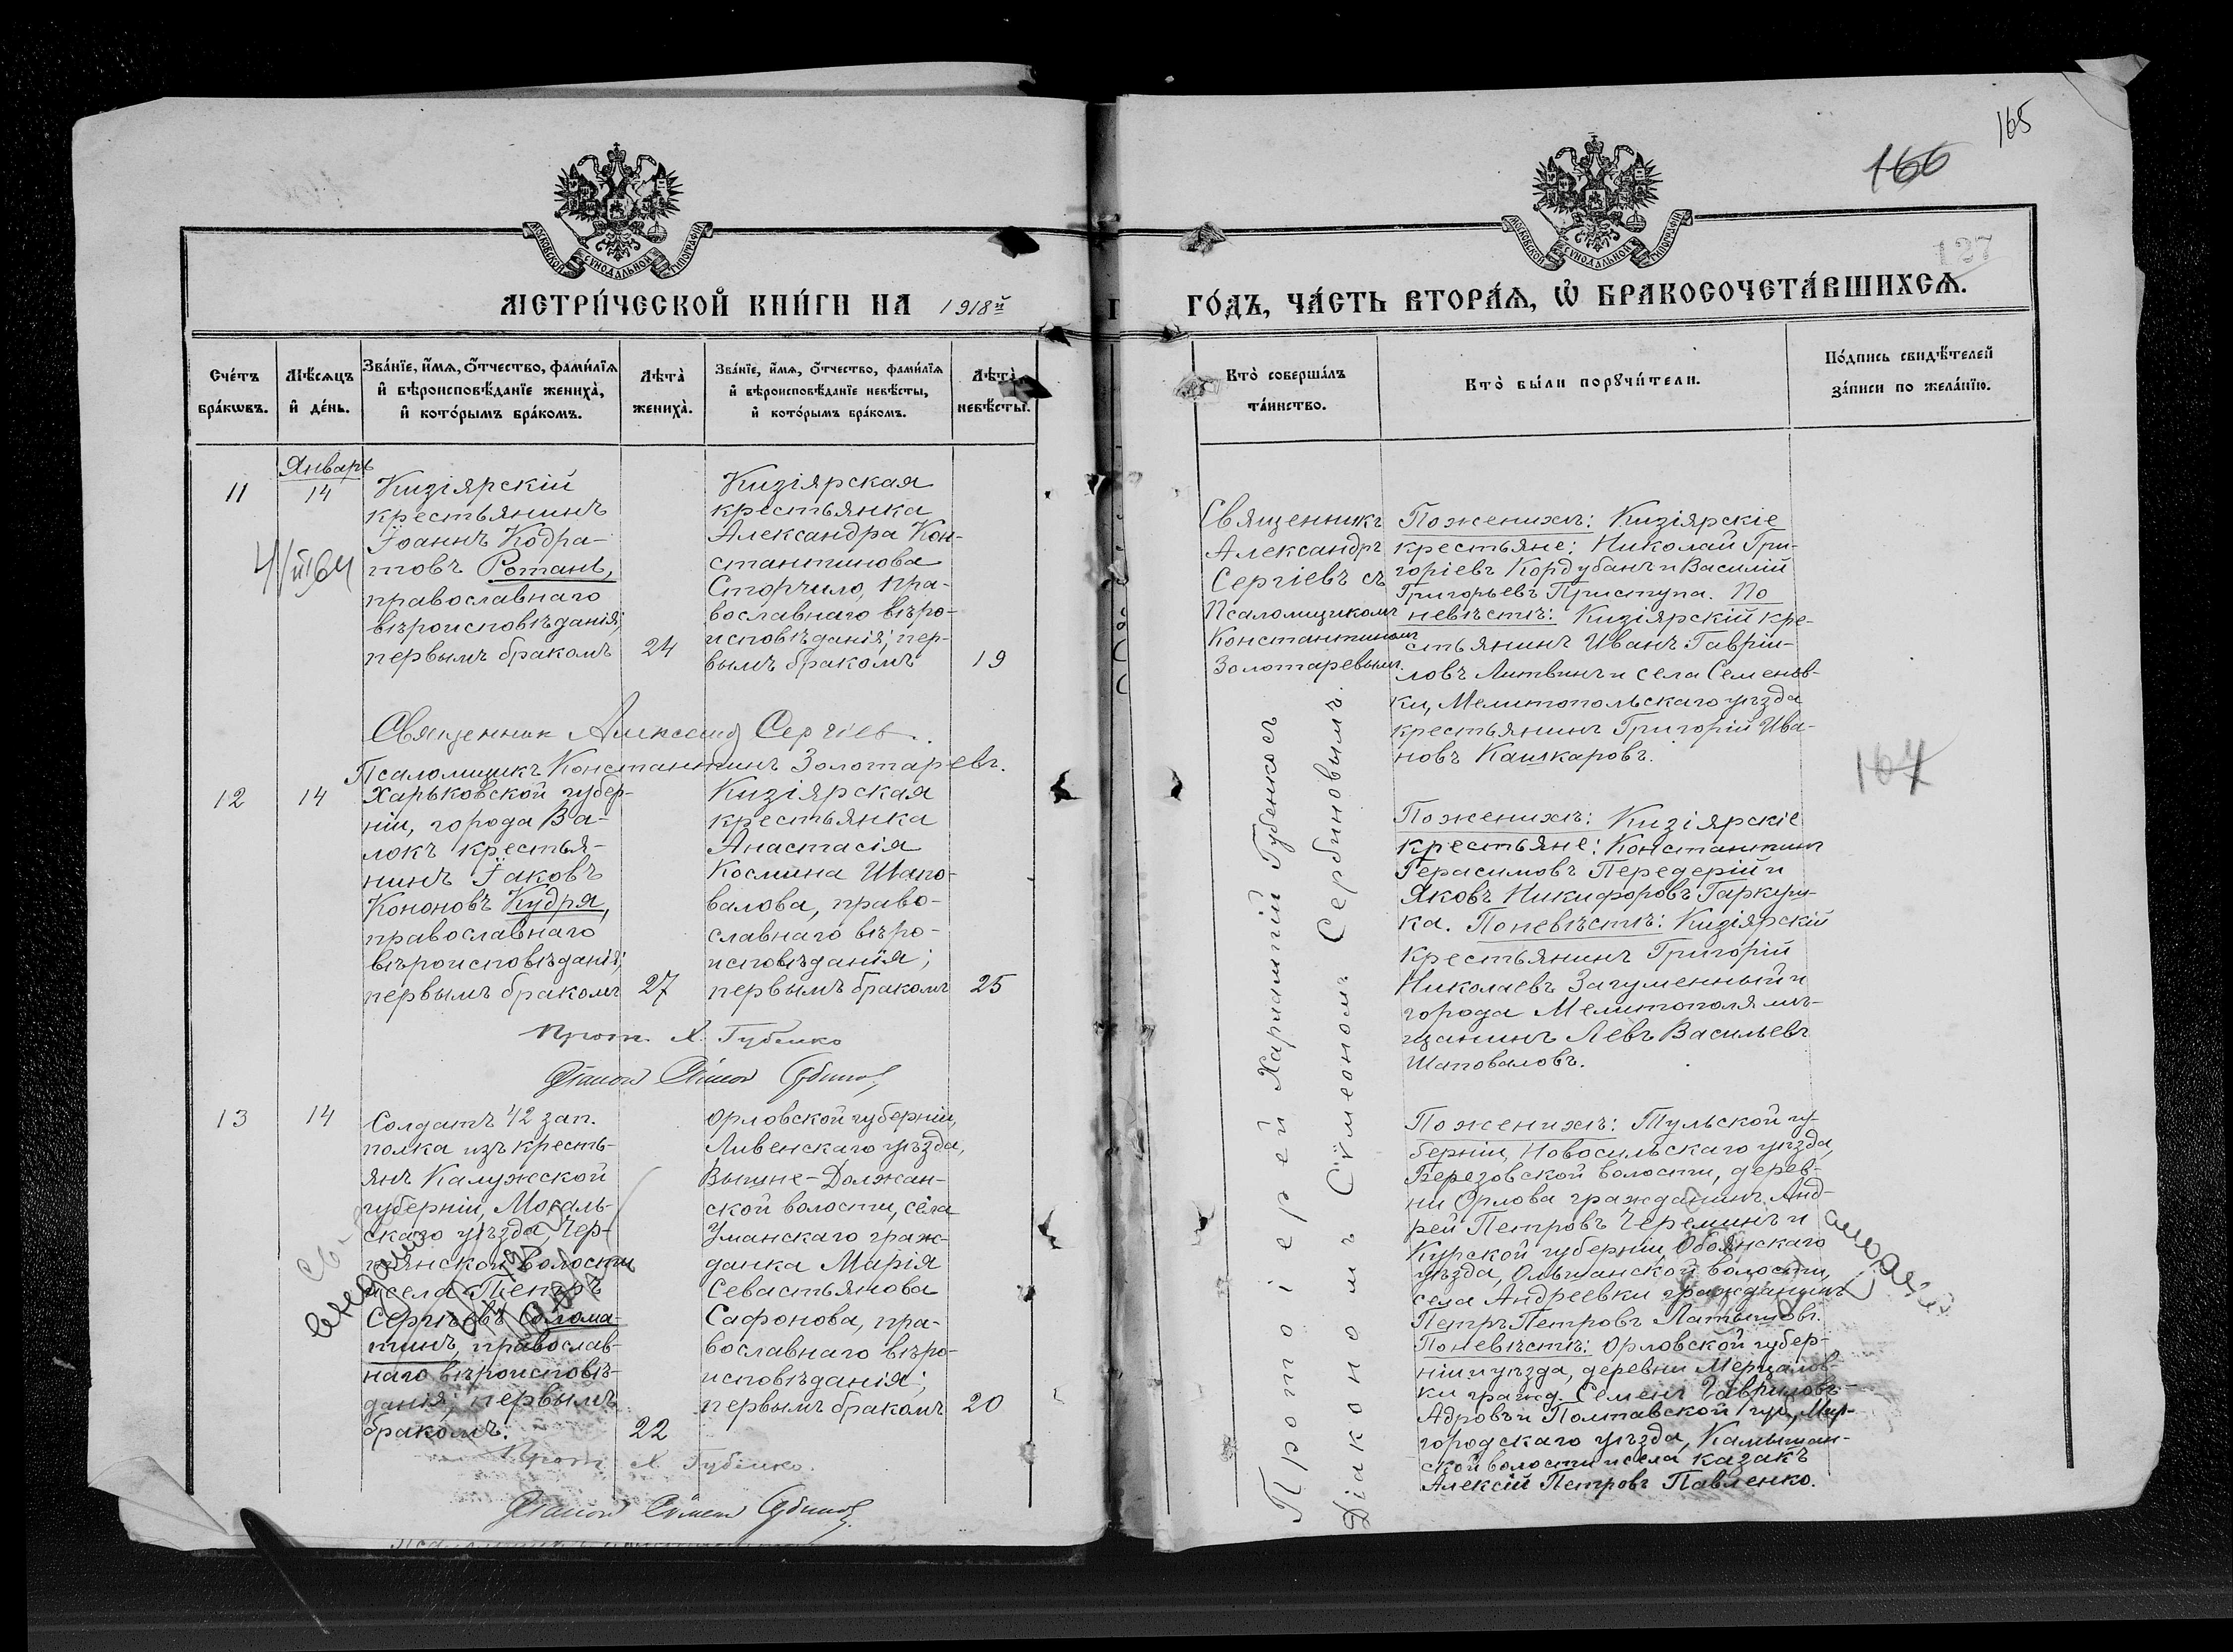 165
166
127
МОСКОВСКОЙ СѴНОДАЛЬНОЙ ТИПОГРАФІИ
МОСКОВСКОЙ СѴНОДАЛЬНОЙ ТИПОГРАФІИ
МЕТРИ́ЧЕСКОЙ КНИ́ГИ НА 1918й
ГО́ДЪ, ЧА́СТЬ ВТОРА́Я, Ѽ БРАКОСОЧЕТА́ВШИХСЯ.
Сче́тъ бра́кѡвъ.
Мѣ́сяцъ и҆ де́нь.
Зва́нїе, и҆́мя, ѻ҆́тчество, фами́лїя
и҆ вѣроисповѣ́данїе жениха̀,
и҆ кото́рымъ бра́комъ.
Лѣта̀ жениха̀.
Зва́нїе, и҆́мя, ѻ҆́тчество, фами́лїя
и҆ вѣроисповѣ́данїе невѣ́сты,
и҆ кото́рымъ бра́комъ.
Лѣта̀ невѣ́сты.
Кто̀ соверша́лъ
та́инство.
Кто̀ бы́ли порꙋчи́тели.
По́дпись свидѣ́телей
за́писи по жела́нїю.
Январь
11
14
Кизіярскій
крестьянинъ
Іоаннъ Кодра-
товъ Ротань,
православнаго
вѣроисповѣданія;
первымъ бракомъ
24
Кизіярская
крестьянка
Александра Кон-
стантинова
Сторчило, пра-
вославнаго вѣро-
исповѣданія; пер-
вымъ бракомъ
19
Священникъ
Александръ
Сергіевъ съ
Псаломщикомъ
Константиномъ
Золотаревымъ.
По женихѣ: Кизіярскіе
крестьяне: Николай Гри-
горіевъ Кордубанъ и Василій
Григорьевъ Приступа. По
невѣстѣ: Кизіярскій кре-
стьянинъ Иванъ Гавріи-
ловъ Литвинъ и села Семенов-
ки, Мелитопольскаго уѣзда
крестьянинъ Григорій Ива-
новъ Кашкаровъ.
Священник Александр Сергіев.
Псаломщикъ Константинъ Золотаревъ.
12
14
Харьковской губер-
ніи, города Ва-
локъ крестья-
нинъ Іаковъ
Кононовъ Кудря,
православнаго
вѣроисповѣданія;
первымъ бракомъ
27
Кизіярская
крестьянка
Анастасія
Космина Шапо-
валова, право-
славнаго вѣро-
исповѣданія;
первымъ бракомъ
25
Протоіерей Харлампій Губенко съ
Діакономъ Сѵмеономъ Сербиновымъ.
По женихѣ: Кизіярскіе
крестьяне: Константинъ
Герасимовъ Передерій и
Яковъ Никифоровъ Гаркуш-
ка. По невѣстѣ: Кизіярскій
крестьянинъ Григорій
Николаевъ Загуменный и
города Мелитополя мѣ-
щанинъ Левъ Васильевъ
Шаповаловъ.
Прот. Х. Губенко
Діакон Сѵмеон Сербинов
13
14
Солдатъ 42 зап.
полка изъ кресть-
янъ Калужской
губерніи, Мосаль-
скаго уѣзда, Чер-
волости
села
Сергѣевъ Солома-
тинъ, православ-
наго вѣроисповѣ-
данія; первымъ
бракомъ.
22
Орловской губерніи,
Ливенскаго уѣзда,
Вышне-Должан-
ской волости, села
Уманскаго граж-
данка Марія
Севастьянова
Сафонова, пра-
вославнаго вѣро-
исповѣданія;
первымъ бракомъ
20
По женихѣ: Тульской гу-
берніи, Новосильскаго уѣзда,
Березовской волости, дерев-
ни Орлова гражданинъ Анд-
рей Петровъ Черемин и
Курской губерніи, Обоянскаго
уѣзда, Ольшанской волости,
села Андреевки гражданинъ
Петръ Петровъ Латышовъ.
По невѣстѣ: Орловской губер-
ніи и уѣзда, деревни Мерцалов-
ки гражд. Семенъ Гавриловъ
Адровъ и Полтавской губ., Мир-
городскаго уѣзда, Камышан-
ской волости и села казакъ
Алексій Петровъ Павленко.
Прот. Х. Губенко.
Діакон Сѵмеон Сербинов.